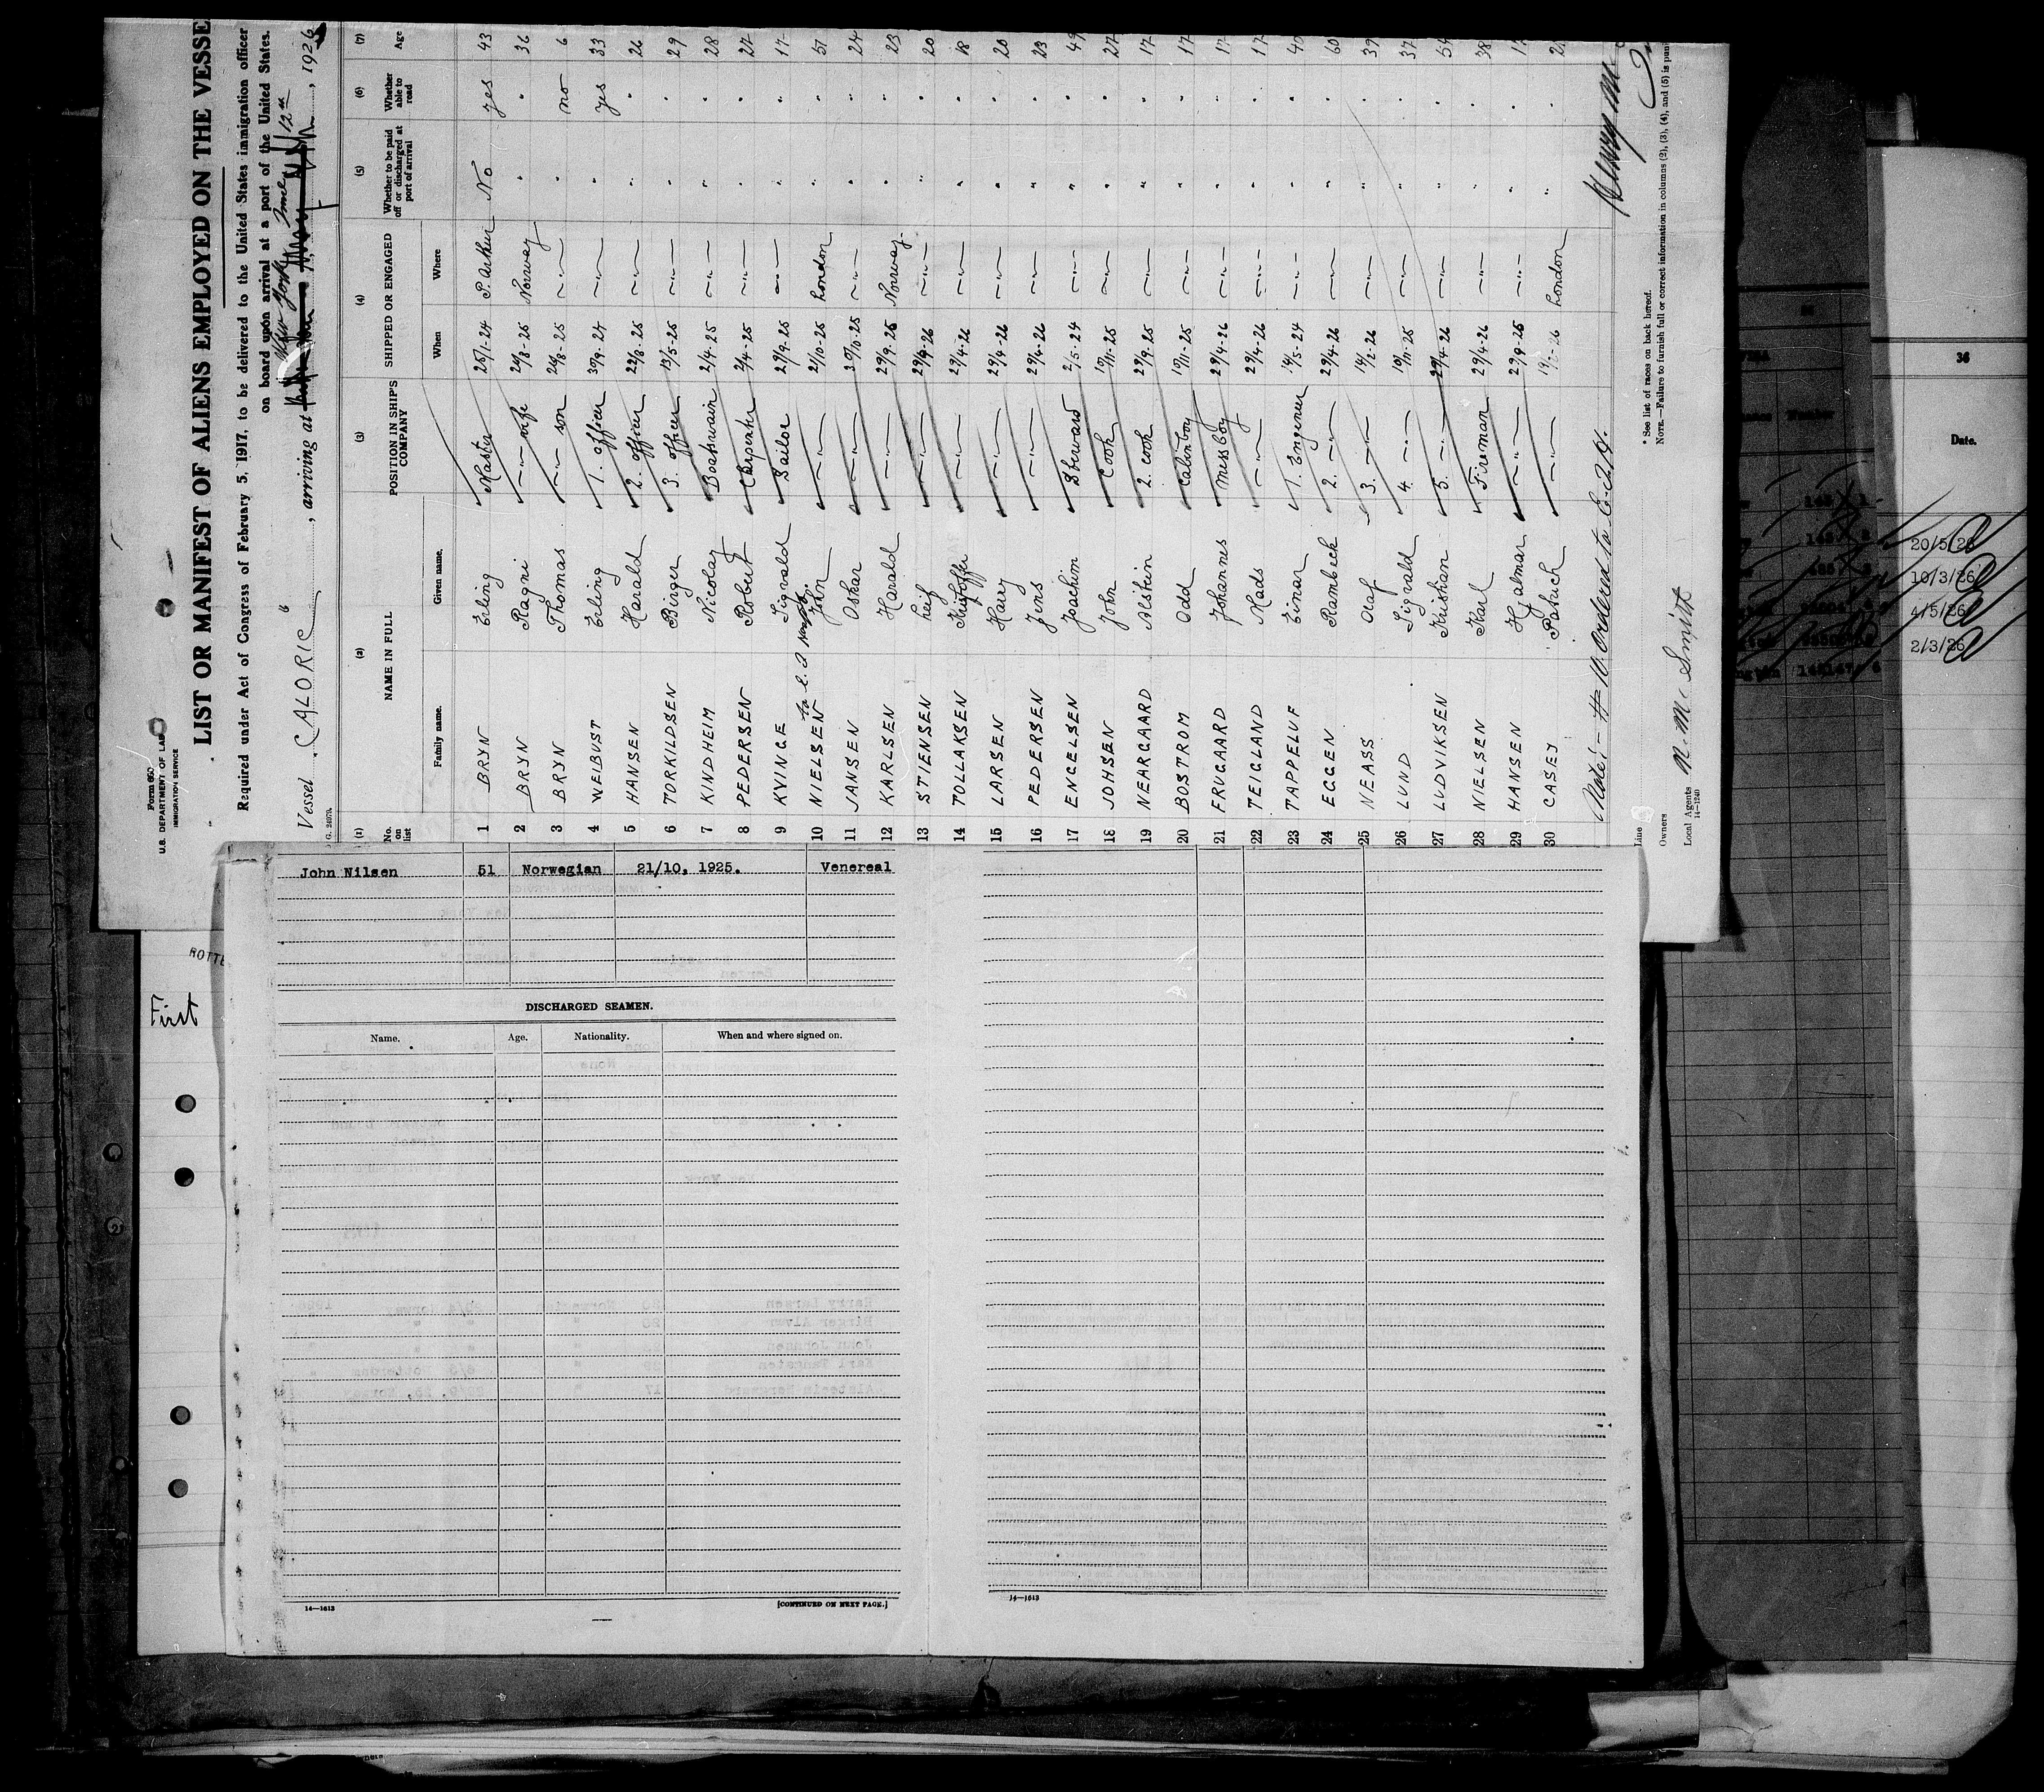 Form 680
U.S. DEPARTMENT OF LAB
IMMIGRATION SERVICE
LIST OR MANIFEST OF ALIENS EMPLOYED ON THE VESSE
Required under Act of Congress of February 5, 1917, to be delivered to the United States immigration officer
on board upon arrival at a port of the United States.
New York June 12th
Vessel "CALORIC", arriving at , 1926
(1) (2) (3) (4) (5) (6) (7)
No. on list NAME IN FULL POSITION IN SHIP'S COMPANY SHIPPED OR ENGAGED Whether to be paid off or discharged at port of arrival Whether able to read Age
Family name. Given name. When Where
1 BRYN Erling Master 25/1-24 P. Arthur No yes 43
2 BRYN Ragni — " — wife 29/8-25 Norway " " 36
3 BRYN Thomas — " — son 29/8-25 — " — " no 6
4 WEIBUST Erling 1. officer — " — " yes 33
5 HANSEN Harald 2. officer — " — " " 26
6 TORKILDSEN Birger 3. officer 13/5-25 — " — " " 29
7 KINDHEIM Nicolay Boatswain 2/4-25 — " — " " 28
8 PEDERSEN Robert Carpenter 2/4-25 — " — " " 27
9 KVINGE Sigvald Sailor 29/9-25 — " — " " 17
10 NIELSEN John — " — 21/10-25 London " " 51
11 JANSEN Oskar — " — 30/10-25 — " — " " 24
12 KARLSEN Harald — " — 29/9-25 Norway " " 23
13 STIENSEN Leif — " — — " — " " 20
14 TOLLAKSEN Kristoffer — " — 29/4-26 — " — " " 18
15 LARSEN Harry — " — 29/4-26 — " — " " 20
16 PEDERSEN Jens — " — 29/4-26 — " — " " 23
17 ENGELSEN Joachim Steward 2/5-24 — " — " " 49
18 JOHSEN John Cook 10/11-25 — " — " " 27
19 NEARGAARD Alstein 2. cook 29/9-25 — " — " " 17
20 BOSTROM Odd Cabinboy 10/11-25 — " — " " 17
21 FRUGAARD Johannes messboy 29/4-26 — " — " " 17
22 TEIGLAND Mads — " — 29/4-26 — " — " " 17
23 TAPPELUF Einar 1. Engeneer 14/5-24 — " — " "
24 EGGEN Rambech 2. — " — 29/4-26 — " — " " 60
25 NEASS Olaf 3. — " — 14/2-26 — " — " " 39
26 LUND Sigvald 4. — " — 10/11-25 — " — " " 37
27 LUDVIKSEN Kristian 5. — " — 29/4-26 — " — " " 54
28 NIELSEN Karl Fireman 29/4-26 — " — " " 38
29 HANSEN Hjalmar — " — 29/9-25 — " — " "
30 CASEY Patrick — " — London " "
Note:- # 10 Ordered to
Line
Owners
Local Agents
14—1240
* See list of races on back hereof.
NOTE.—Failure to furnish full or correct information in columns (2), (3), (4), and (5) is pun
John Nilsen 51 Norwegian 21/10, 1925. Venereal
DISCHARGED SEAMEN.
Name. Age. Nationality. When and where signed on.
14—1613 [CONTINUED ON NEXT PAGE.]
14—1613
ROTTE
First
36
Number
Date.
20/5/26
10/3/26
4/5/26
2/3/26